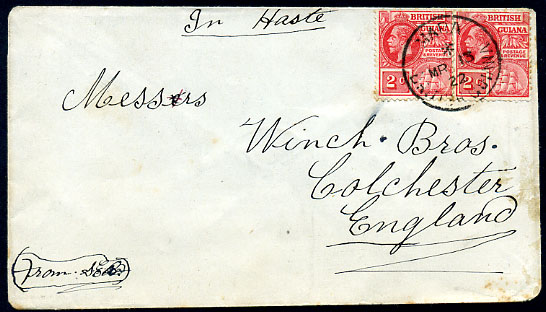 In Haste
BRITISH GUIANA
POSTAGE & REVENUE
2
BRITISH GUIANA
POSTAGE & REVENUE
2
MR 15
22
Messrs
Winch. Bros.
Colchester
England
From